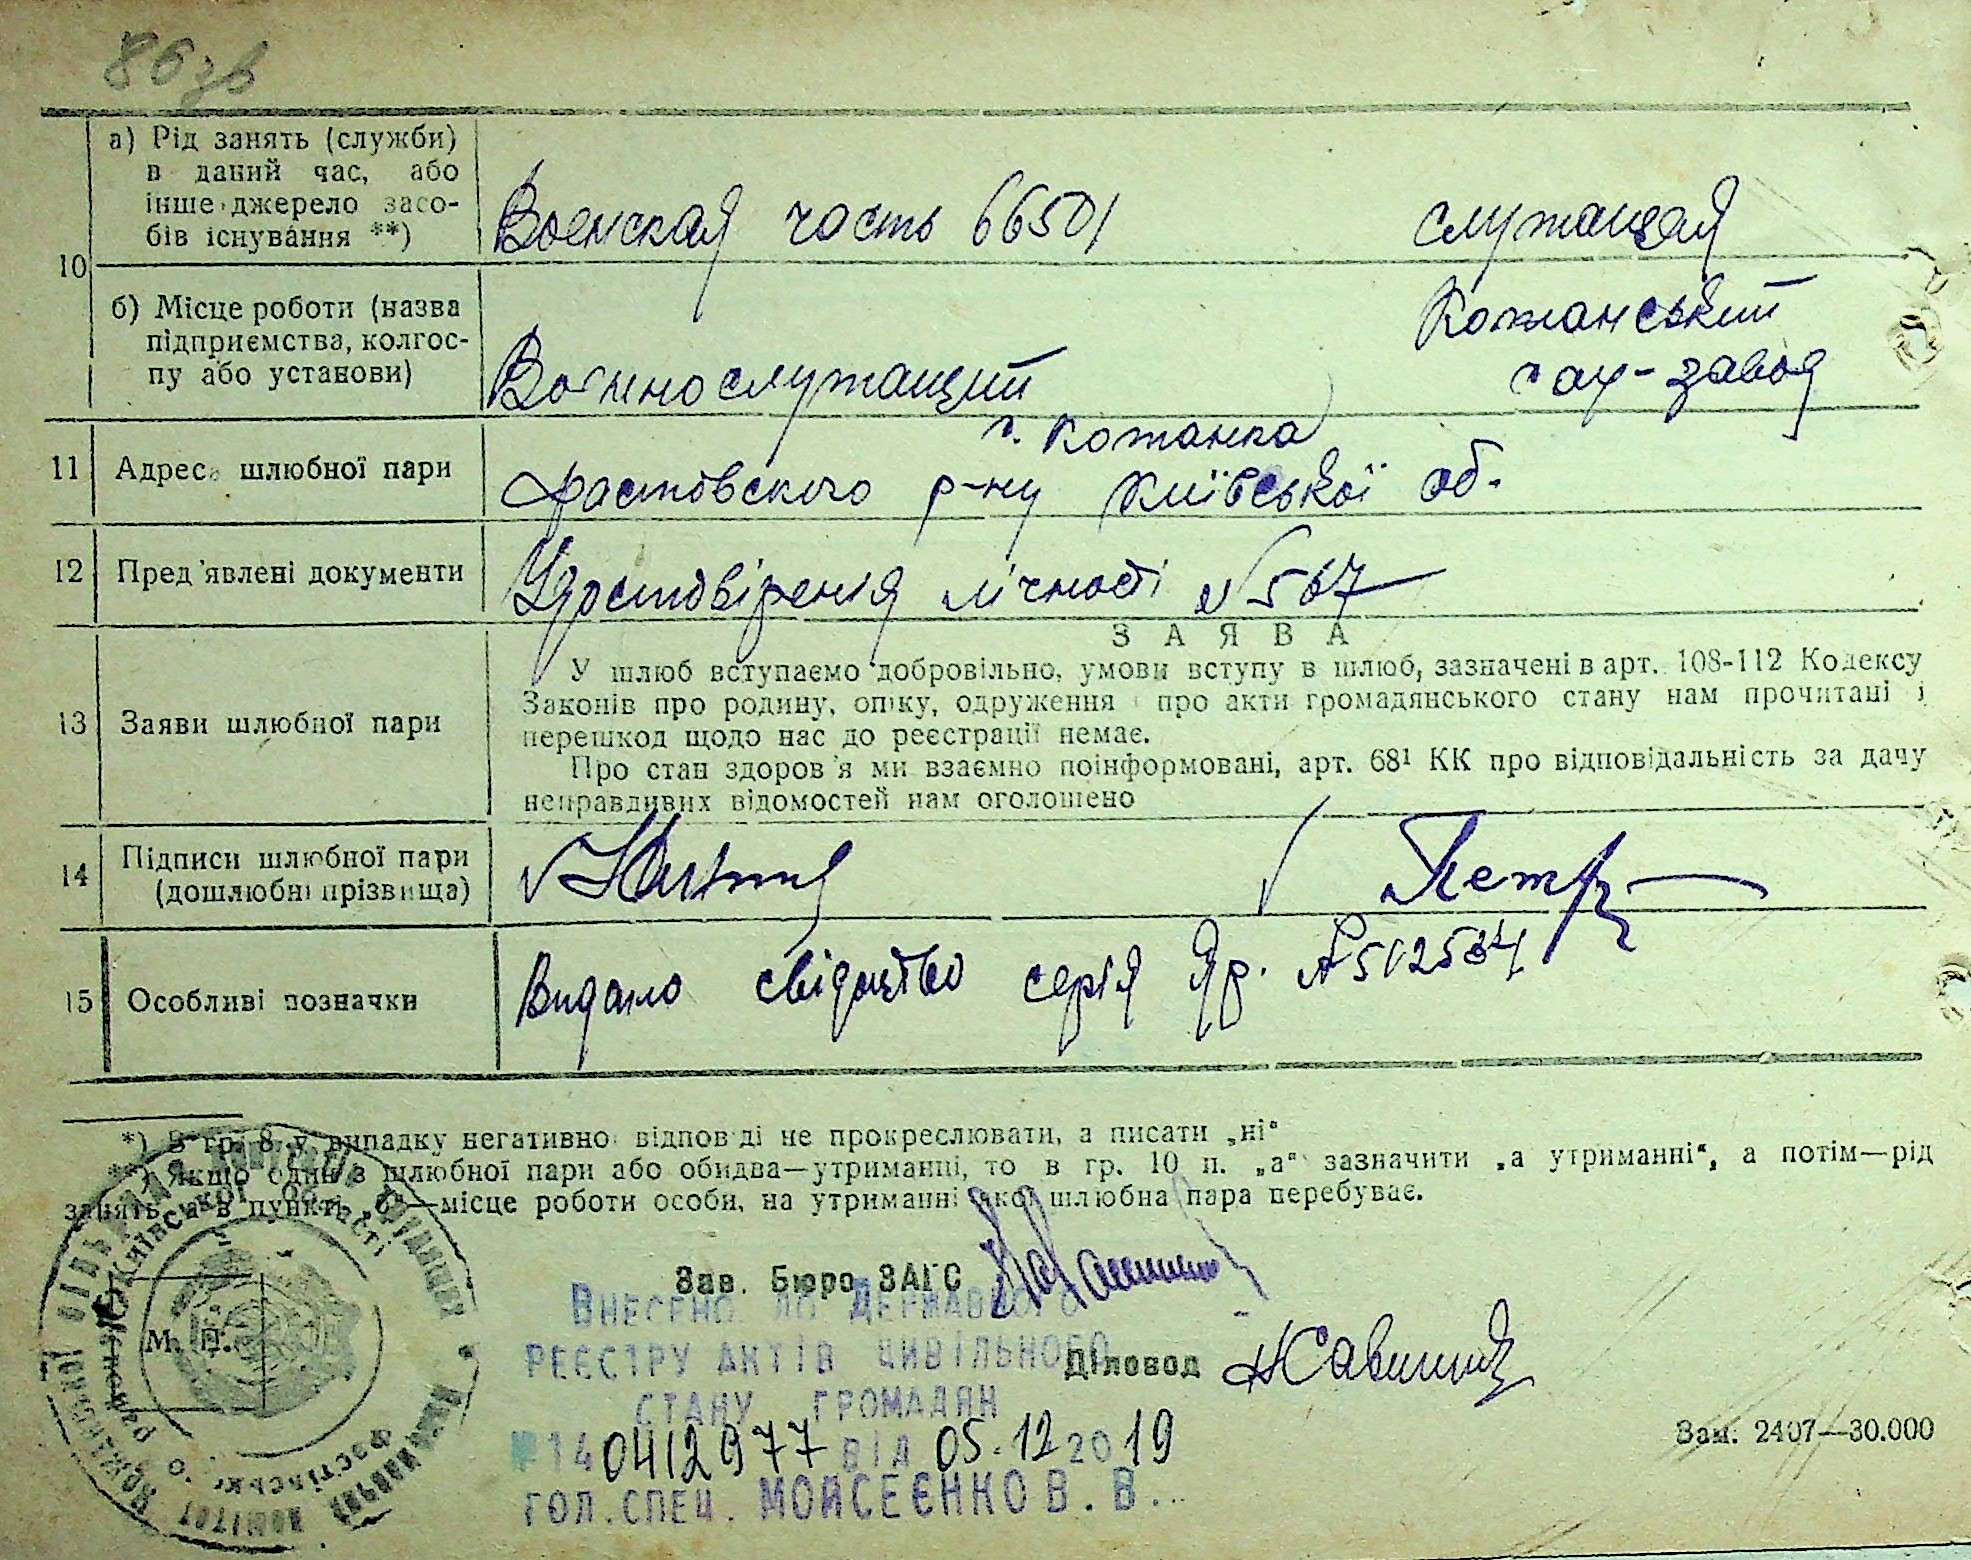 86 зв
а) Рід занять (служби)
в даний час, або
інше джерело засо-
бів існування **)
Военская часть 66501 служащая
10
б) Місце роботи (назва
підприємства, колгос-
пу або установи)
Военнослужащий
Кожанський
сах-завод
11 Адреса шлюбної пари
с. Кожанка
Фастовского р-ну Київської об.
12 Пред'явлені документи Удостовіренія лічності № 567
ЗАЯВА
13 Заяви шлюбної пари
У шлюб вступаємо добровільно, умови вступу в шлюб, зазначені в арт. 108-112 Кодексу
Законів про родину, опіку, одруження і про акти громадянського стану нам прочитані і
перешкод щодо нас до реєстрації немає.
Про стан здоров'я ми взаємно поінформовані, арт. 68¹ КК про відповідальність за дачу
неправдивих відомостей нам оголошено
14 Підписи шлюбної пари
(дошлюбні прізвища)
Петр
15 Особливі позначки Видано свідоцтво серія Яр. № 502534
*) В гр. 8 у випадку негативної відповіді не прокреслювати, а писати „ні“
**) Якщо один з шлюбної пари або обидва—утриманці, то в гр. 10 п. „а“ зазначити „а утриманні“, а потім—рід
занять, а в пункті „б“—місце роботи особи, на утриманні якої шлюбна пара перебуває.
Зав. Бюро ЗАГС
Внесено до Державного
реєстру актів цивільного
Діловод НСавицька
стану громадян
№ 140412977 від 05.12 2019
гол. спец. Мойсеєнко В. В.
М. П.
Київської області
Зам. 2407—30.000